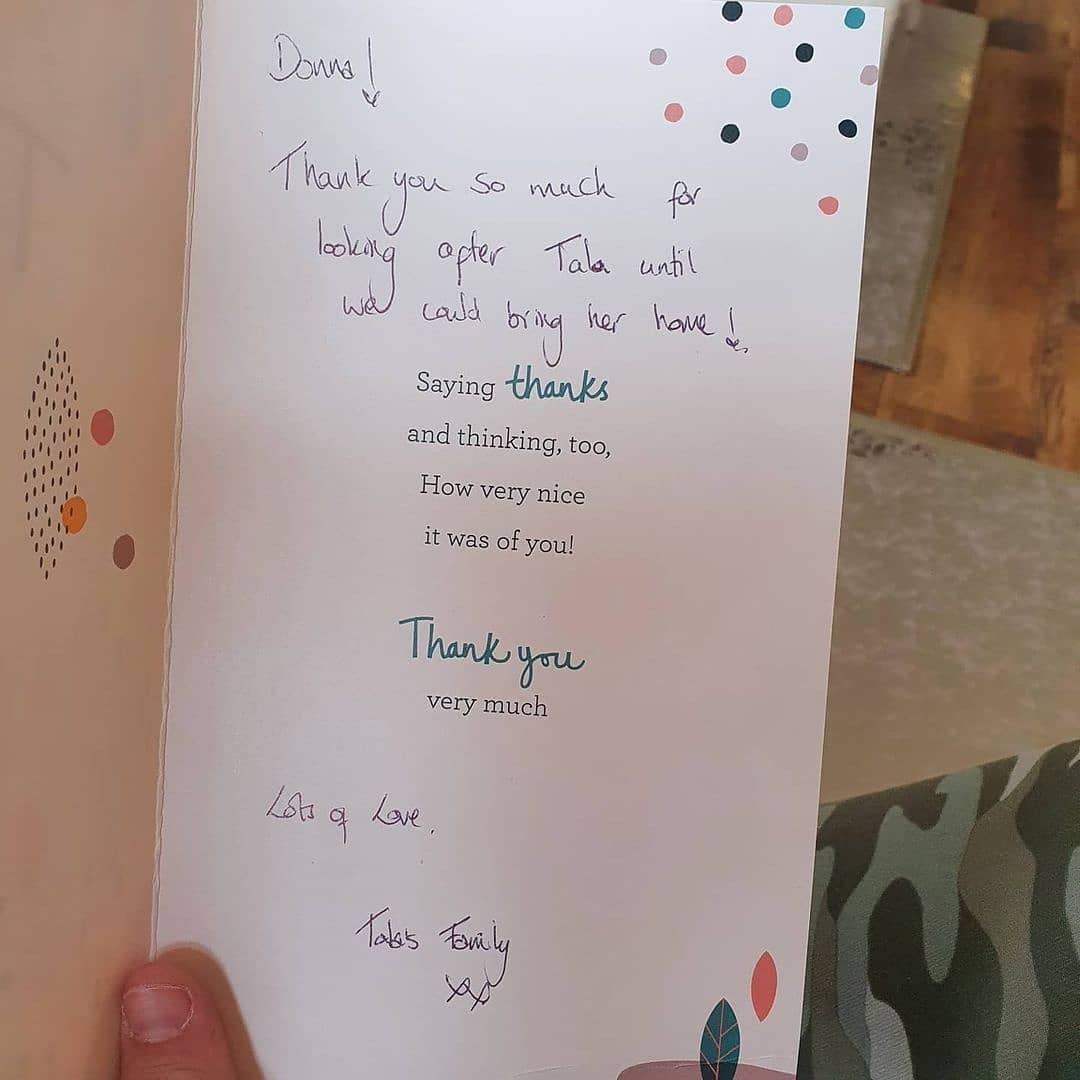 Donna!
Thank you so much for
looking after Tala until
we could bring her home!
Saying thanks
and thinking, too,
How very nice
it was of you!
Thank you
very much
Lots of Love,
Tala's Family
xx